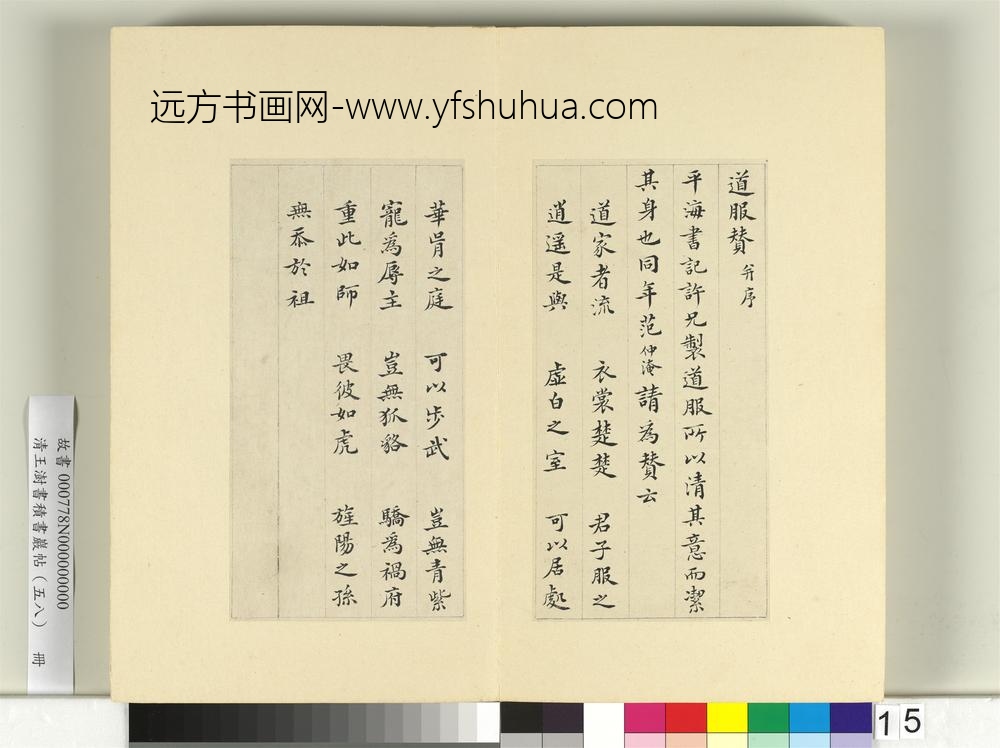 远方书画网-www.yfshuhua.com
道服赞 并序
平海書記許兄製道服所以清其意而潔
其身也同年范仲淹請為賛云
道家者流 衣裳楚楚 君子服之
逍遥是與 虚白之室 可以居處
華胥之庭 可以步武 豈無青紫
寵為辱主 豈無狐貉 驕為禍府
重此如師 畏彼如虎 旌陽之孫
無忝於祖
故書 000778N000000000
清王澍書積書巖帖（五八） 冊
15